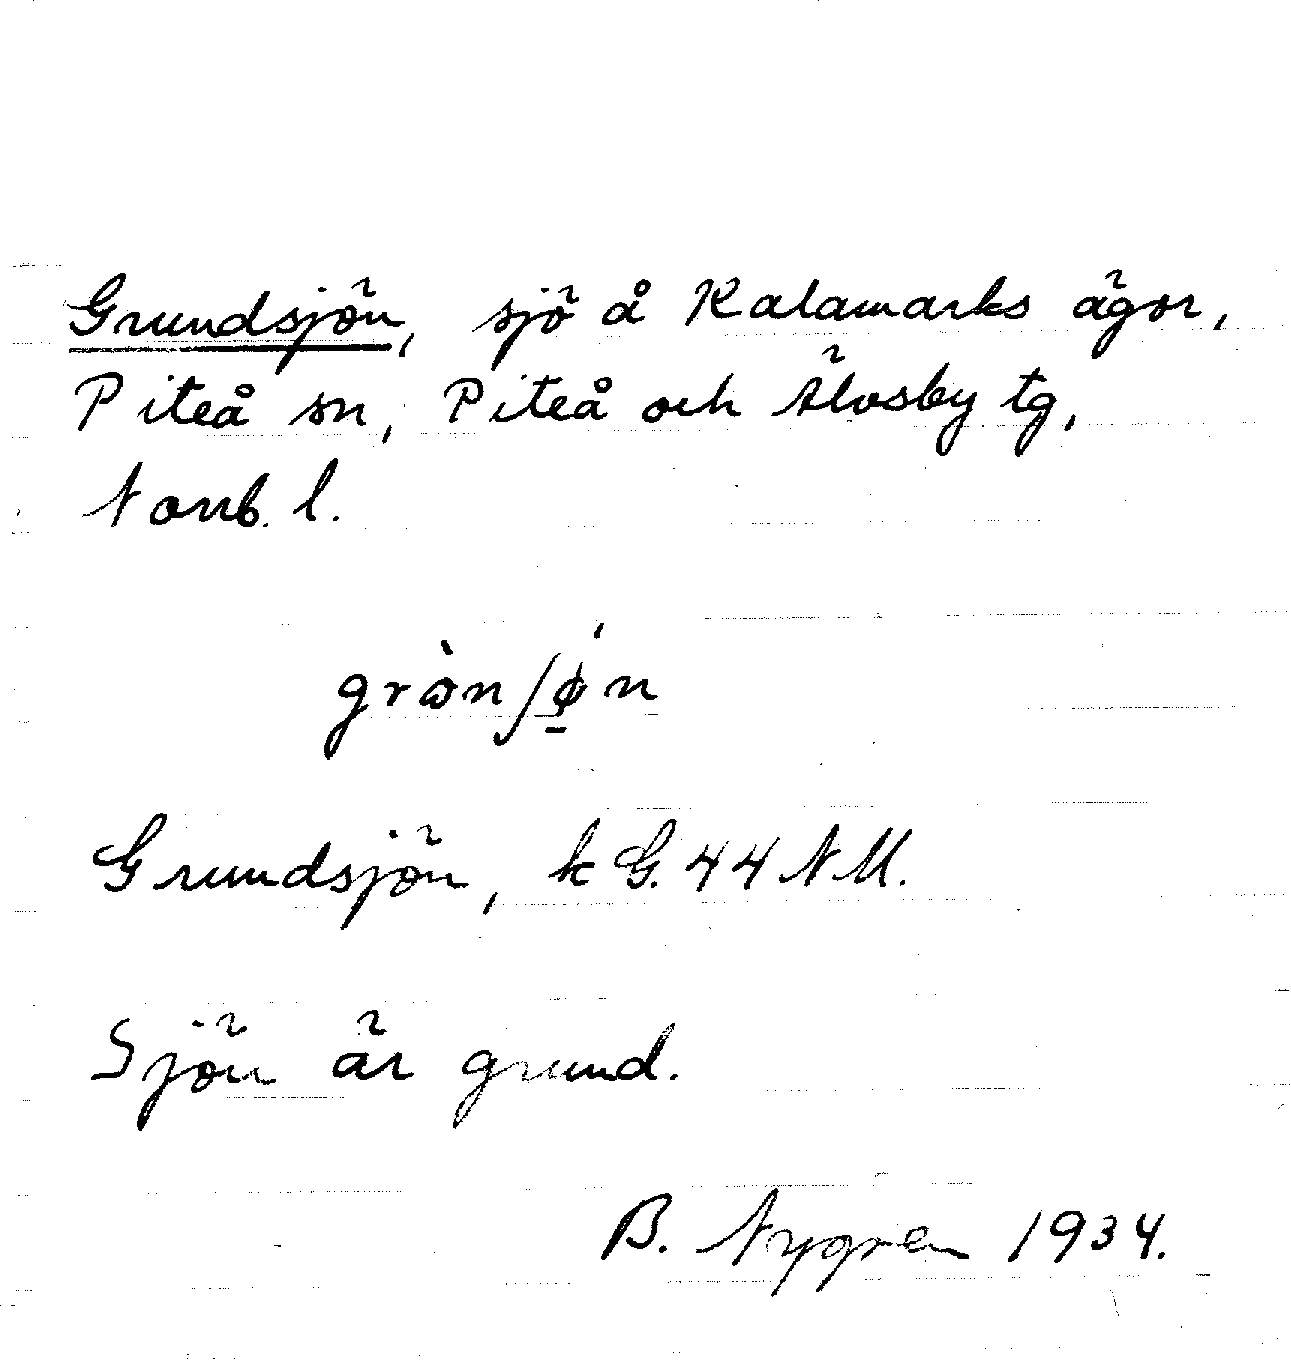 Grundsjön, sjö å Kalamarks ägor,
Piteå sn, Piteå och Älvsby tg,
Norrb. l.
grὼnʃǿ̱n
Grundsjön, kG. 44 NM.
Sjön är grund.
B. Nygren 1934.